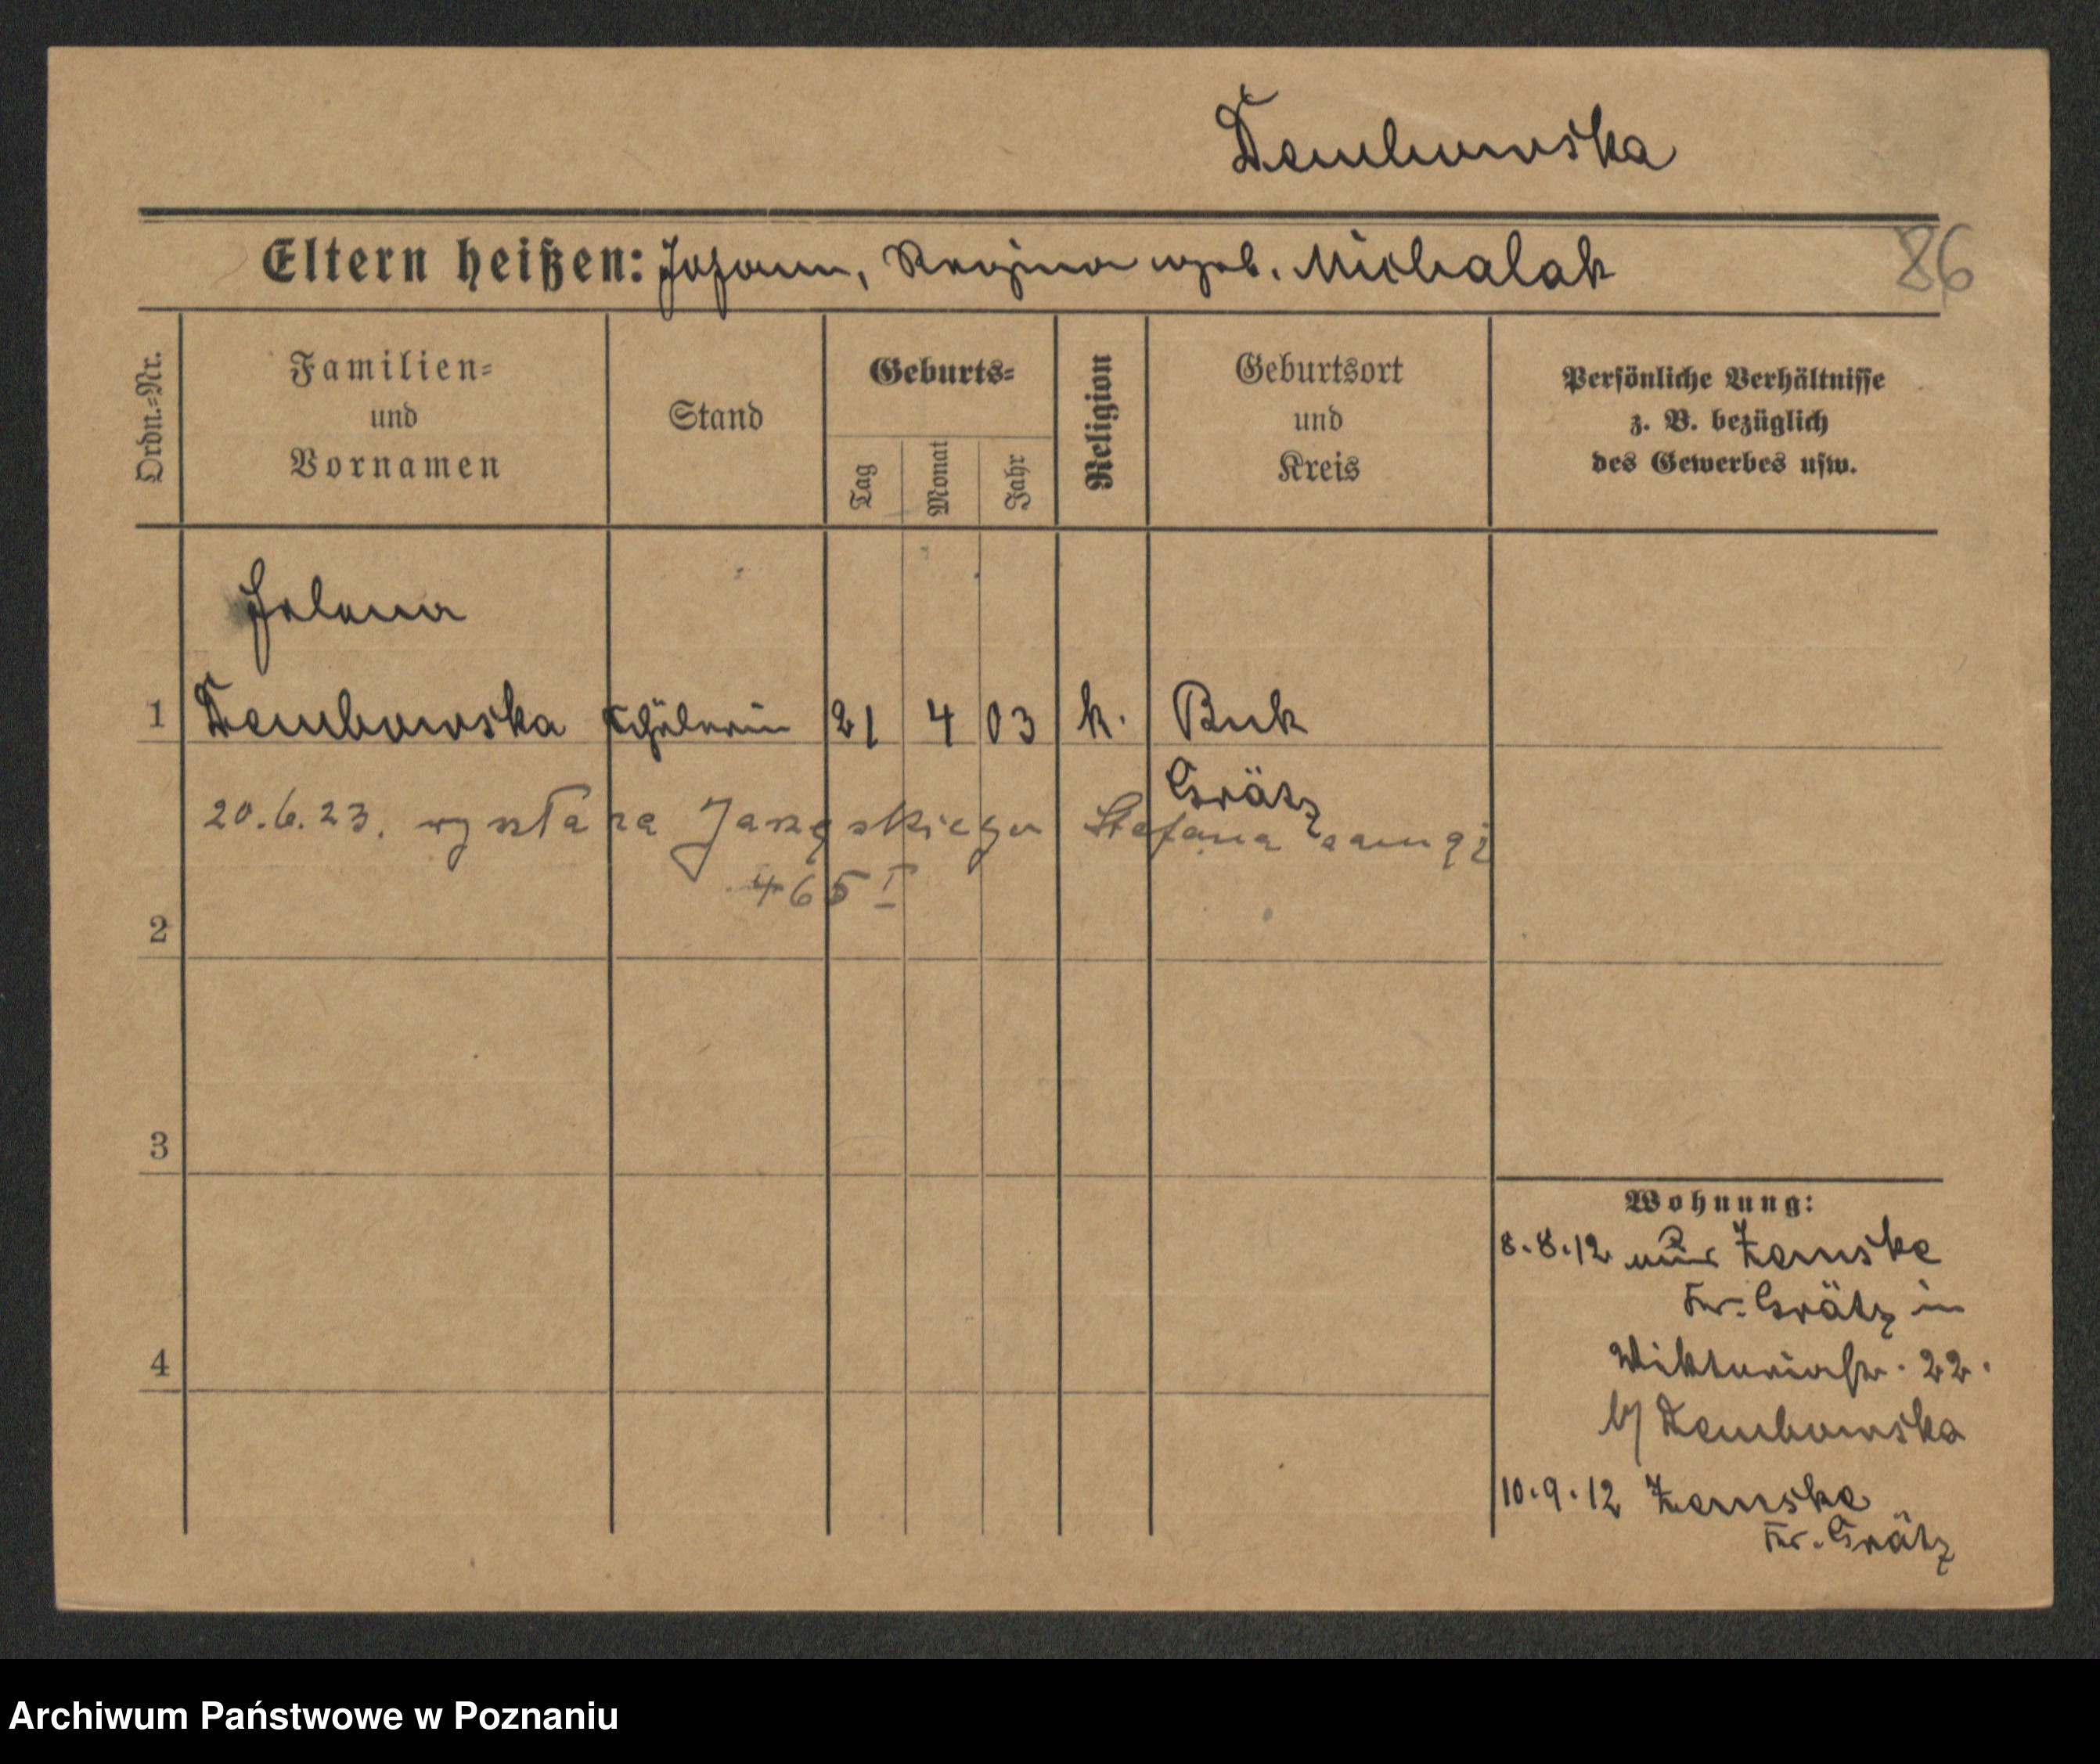 Dembowska
Eltern heißen: Johann, Regina geb. Michalak
86
Ordn.-Nr.
Familien-
und
Vornamen
Stand
Geburts-
Tag
Monat
Jahr
Religion
Geburtsort
und
Kreis
Persönliche Verhältnisse
z. B. bezüglich
des Gewerbes usw.
Helena
1 Dembowska Schülerin 21 4 03 k. Buk
Grätz
20.6.23. Stefana
465 I
2
3
4
Wohnung:
8.8.12
Kr. Grätz in
Viktoriastr. 22.
b/ Dembowska
10.9.12
Kr. Grätz
Archiwum Państwowe w Poznaniu